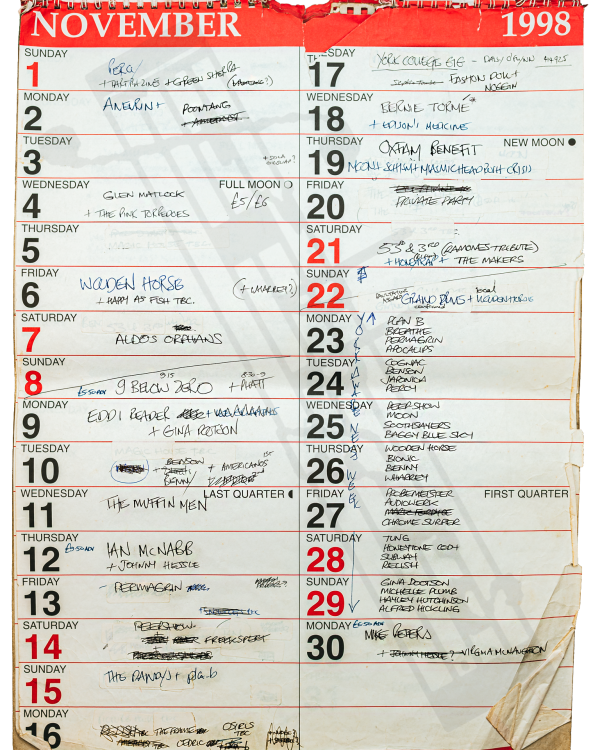 NOVEMBER 1998
SUNDAY
1
PERCY
+ TARTRAZINE + GREEN SHERPA
MONDAY
2
ANEURIN +
POONTANG
TUESDAY
3
WEDNESDAY
4
FULL MOON
GLEN MATLOCK
£5/£6
+ THE PINK TORPEDOES
THURSDAY
5
FRIDAY
6
WOODEN HORSE
(+ WHARREY?)
+ HAPPY AS FISH TBC.
SATURDAY
7
ALDOS ORPHANS
SUNDAY
8
9.15
8.30-9
£5.50 ADV
9 BELOW ZERO + PLATT
MONDAY
9
EDDI READER
+ GINA
TUESDAY
10
BENSON
+ AMERICANOS
BENNY
WEDNESDAY
11
LAST QUARTER
THE MUFFIN MEN
THURSDAY
12
£5.50 ADV
IAN McNABB
+ JOHNNY HESSLE
FRIDAY
13
PERMAGRIN
SATURDAY
14
PEEPSHOW
FREEKSPERT
SUNDAY
15
THE DANDYS + plan b
MONDAY
16
TBC THE FRAME
OSIRIS
TBC
CEDRIC
TUESDAY
17
YORK COLLEGE GIG -
FASHION DOLL +
NOGEAN
WEDNESDAY
18
BERNIE TORME
+ MEDICINE
THURSDAY
19
NEW MOON
OXFAM BENEFIT
MOON + SCHISM +
FRIDAY
20
PRIVATE PARTY
SATURDAY
21
53rd & 3rd (RAMONES TRIBUTE)
+ HONEYTRAP + THE MAKERS
SUNDAY
22
local
GRAND DRIVE + WOODEN HORSE
MONDAY
23
PLAN B
BREATHE
PERMAGRIN
APOCALIPS
TUESDAY
24
COGNAC
BENSON
JAPONICA
PERCY
WEDNESDAY
25
PEEPSHOW
MOON
SOOTHSAYERS
BAGGY BLUE SKY
THURSDAY
26
WOODEN HORSE
BIONIC
BENNY
WHARREY
FRIDAY
27
FIRST QUARTER
PROBEMEISTER
AUDIOWERK
CHROME SURFER
SATURDAY
28
TUNG
HONEYTONE CODY
SUBWAY
RELISH
SUNDAY
29
GINA DOOTSON
MICHELLE PLUMB
HAYLEY HUTCHINSON
ALFRED HICKLING
MONDAY
30
£5.50 ADV
MIKE PETERS
+ JOHNNY HESSLE? VIRGINIA McNAUGHTON